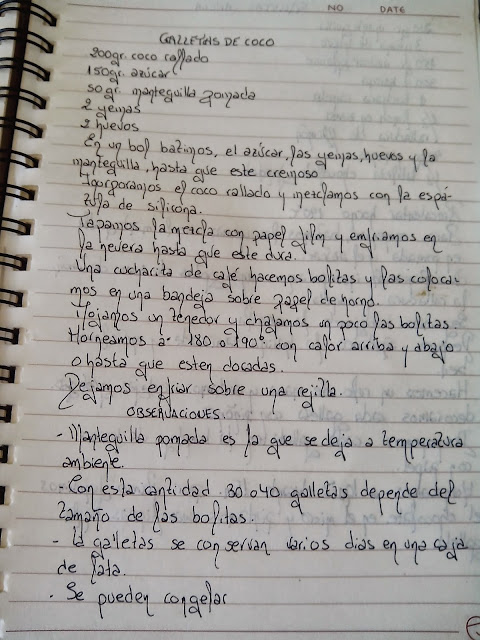 NO DATE
GALLETAS DE COCO
200gr. coco rallado
150gr. azúcar
50gr. mantequilla pomada
2 yemas
2 huevos
En un bol batimos, el azúcar, las yemas, huevos y la
mantequilla, hasta que este cremoso
Incorporamos el coco rallado y mezclamos con la espá-
tula de silicona.
Tapamos la mezcla con papel film y enfriamos en
la nevera hasta que este dura.
Una cucharita de café hacemos bolitas y las coloca-
mos en una bandeja sobre papel de horno.
Mojamos un tenedor y chafamos un poco las bolitas.
Horneamos a 180 o 190º con calor arriba y abajo
o hasta que esten doradas.
Dejamos enfriar sobre una rejilla.
OBSERVACIONES.
- Mantequilla pomada es la que se deja a temperatura
ambiente.
- Con esta cantidad 30 o 40 galletas depende del
tamaño de las bolitas.
- galletas se conservan varios dias en una caja
de lata.
- Se pueden congelar